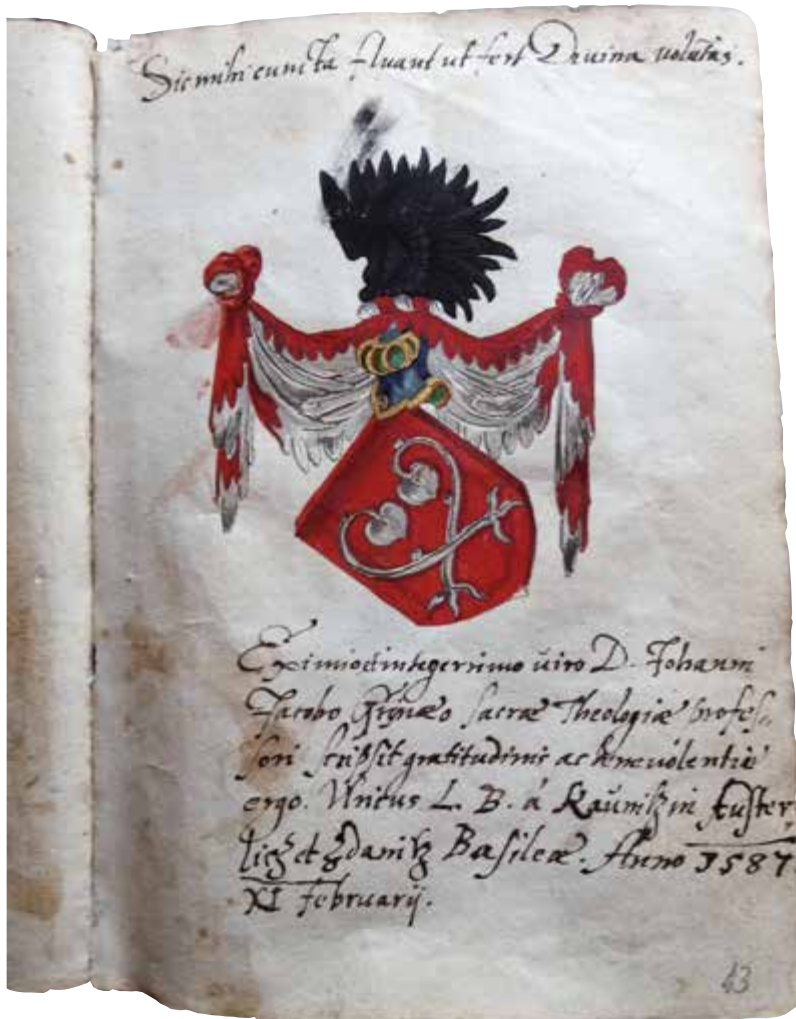 Sic mihi cuncta fluant ut fert Divina volūtas.
Eximio et integerrimo viro D. Johanni
Jacobo Grynæo sacræ Theologiæ profes-
sori scripsit gratitudinis ac benevolentiæ
ergo. Ulricus L. B. á Kaunitz in Auster-
litz et Hdanitz Basileæ. Anno 1587.
XI februarij.
43